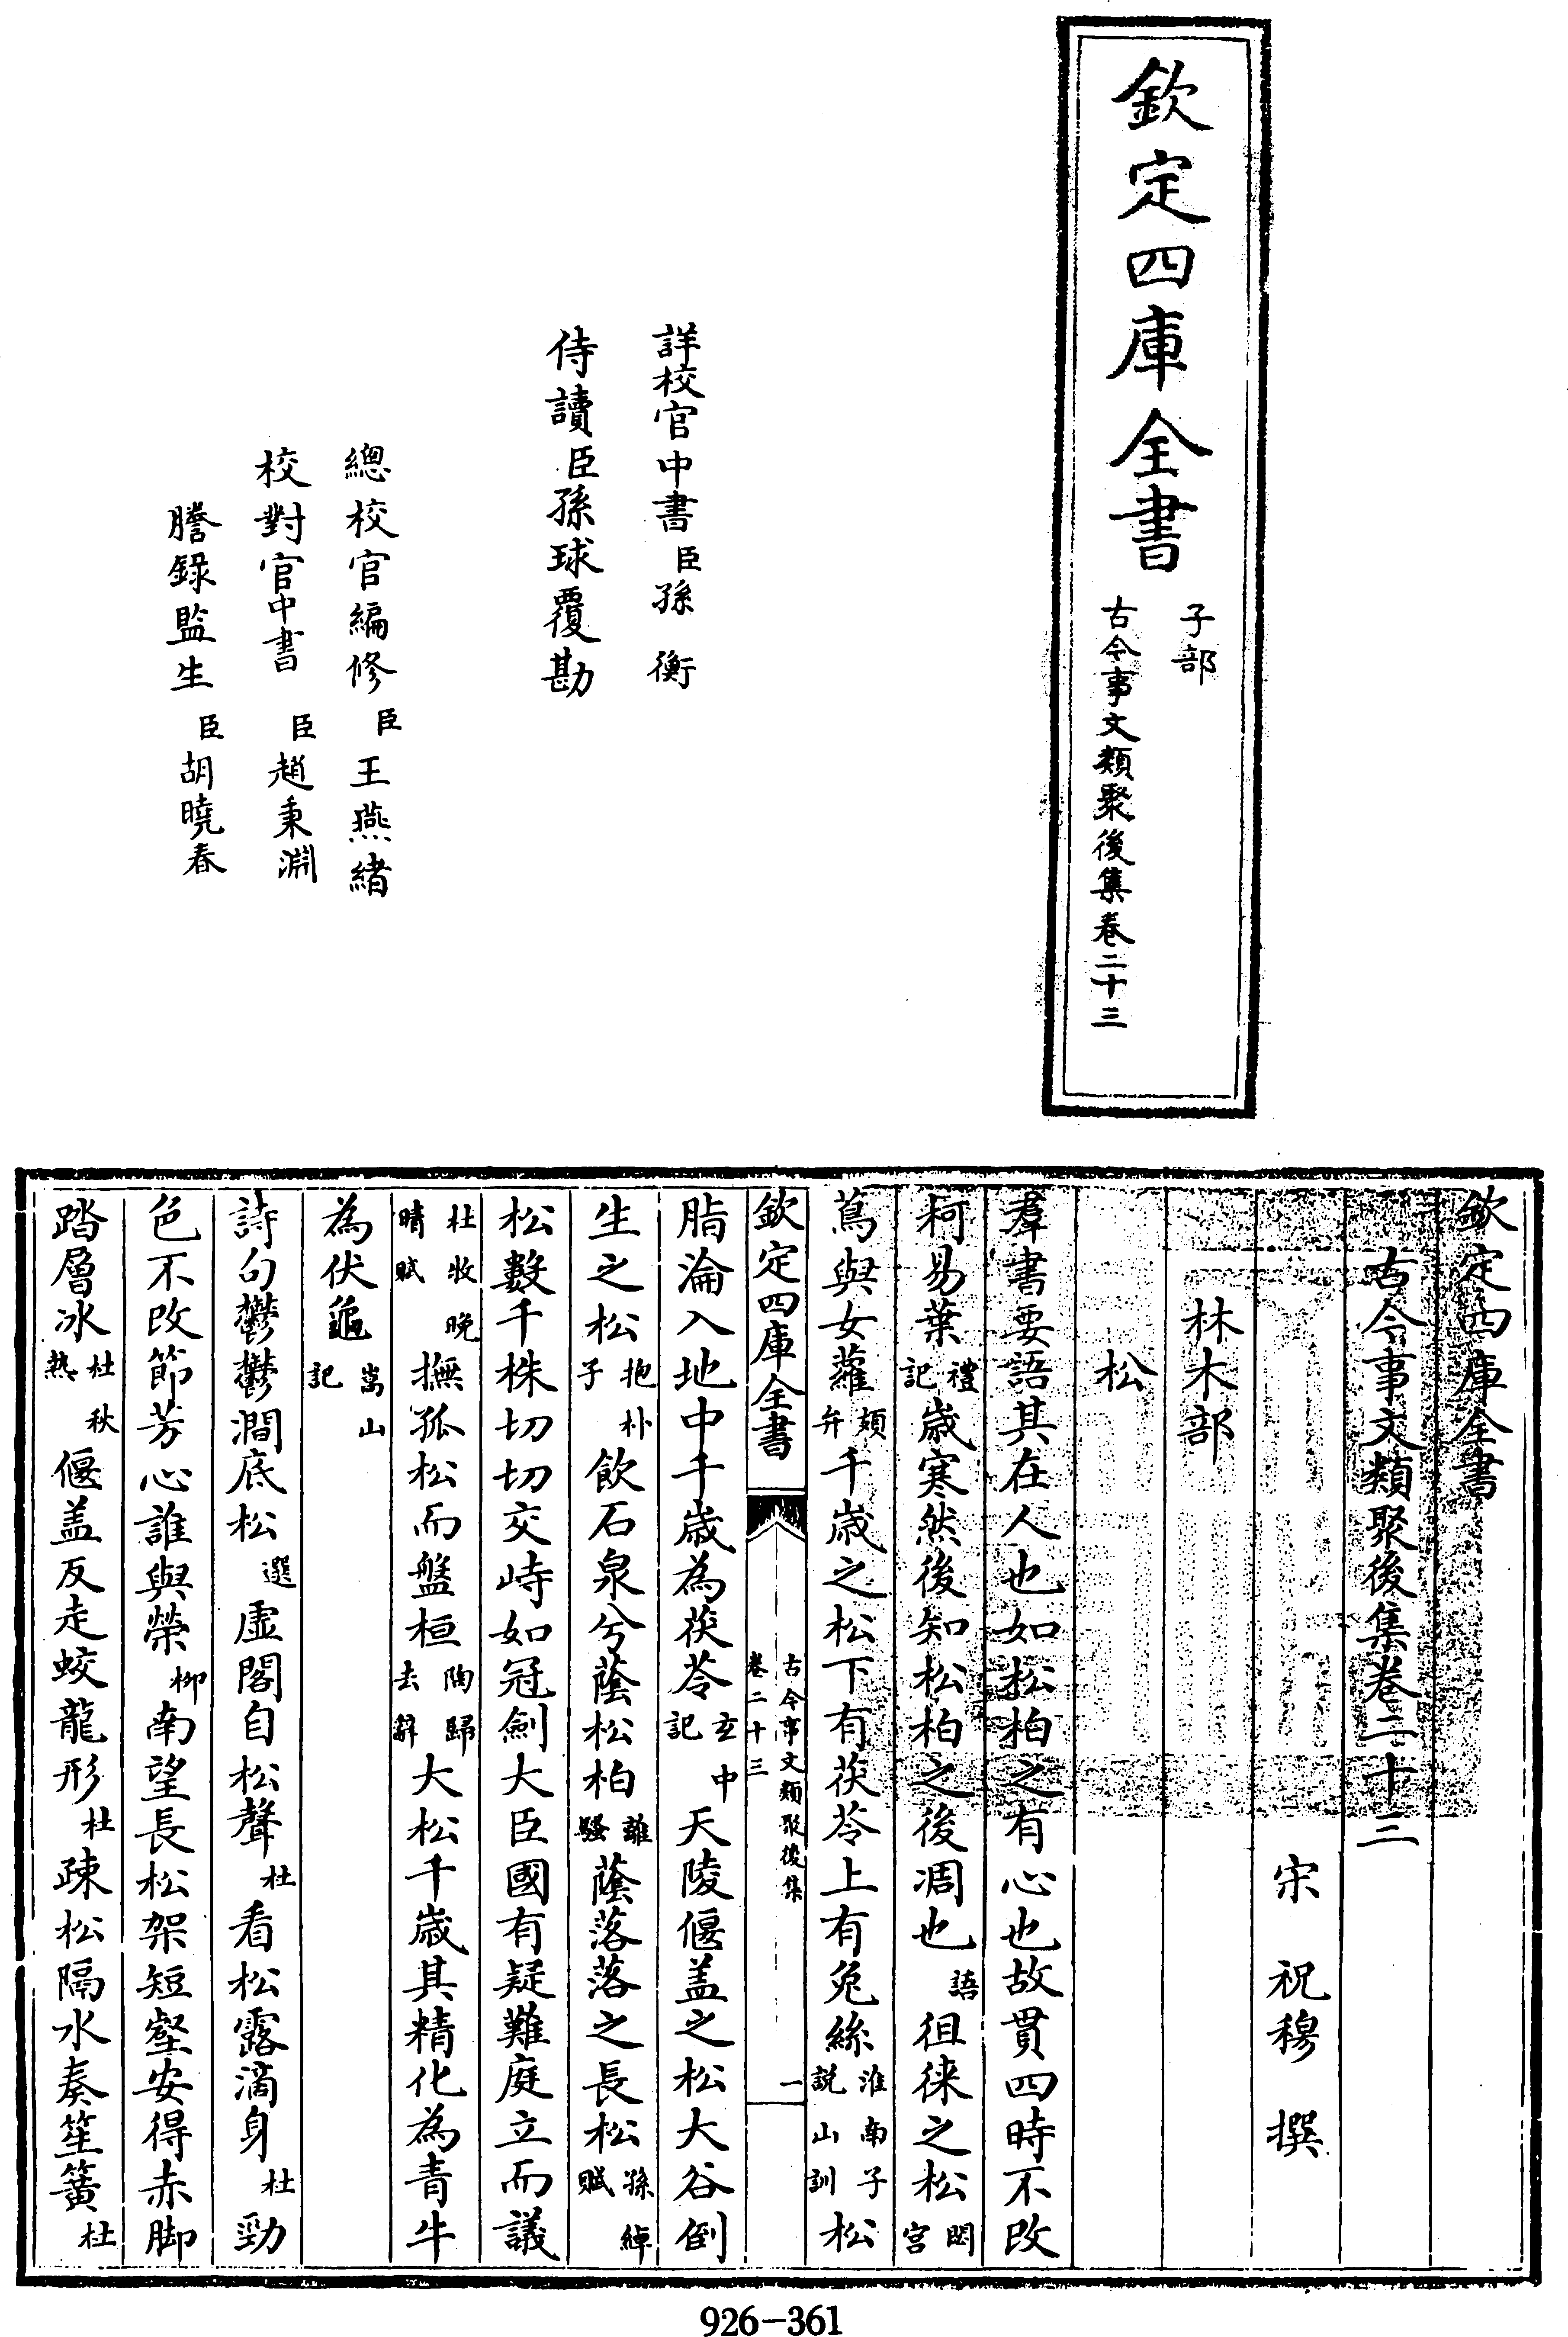 欽定四庫全書
子部
古今事文類聚後集卷二十三
詳校官中書臣孫衡
侍讀臣孫球覆勘
總校官編修臣王燕緒
校對官中書臣趙秉淵
謄錄監生臣胡曉春
欽定四庫全書
古今事文類聚後集卷二十三
宋祝穆撰
林木部
松
羣書要語其在人也如松柏之有心也故貫四時不改
柯易葉禮記歲寒然後知松柏之後凋也語徂徠之松閟宮
蔦與女蘿頍弁千歲之松下有茯苓上有兔絲淮南子說山訓松
欽定四庫全書
古今事文類聚後集
卷二十三
一
脂淪入地中千歲為茯苓玄中記天陵偃盖之松大谷倒
生之松抱朴子飲石泉兮蔭松柏離騷蔭落落之長松孫綽賦
松數千株切切交峙如冠劍大臣國有疑難庭立而議
杜牧晚晴賦撫孤松而盤桓陶歸去辭大松千歲其精化為青牛
為伏龜嵩山記
詩句鬱鬱澗底松選虛閣自松聲杜看松露滴身杜勁
色不改節芳心誰與榮柳南望長松架短壑安得赤脚
踏層冰杜秋熱偃盖反走蛟龍形杜疎松隔水奏笙簧杜
926-361